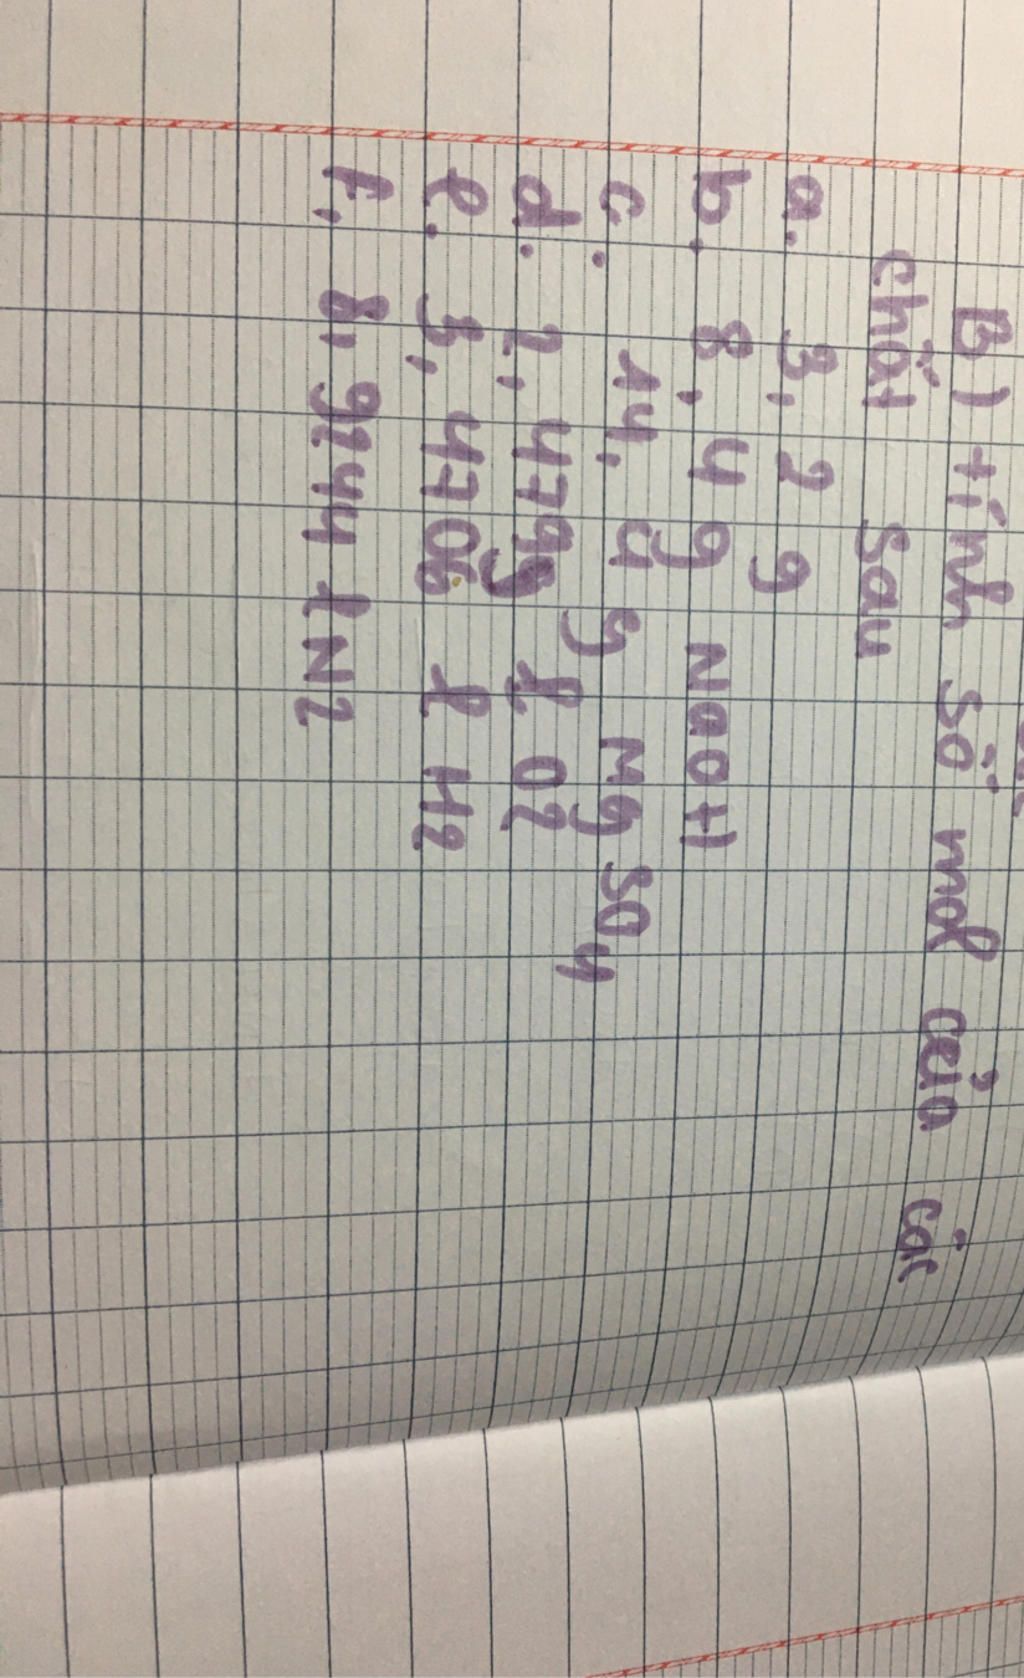 B) tính số mol của các
chất sau
a. 3,2 g
b. 8,4 g NaOH
c. 14,4 g MgSO4
d. 2,479 l O2
e. 3,4706 l H2
f. 8,9244 l N2